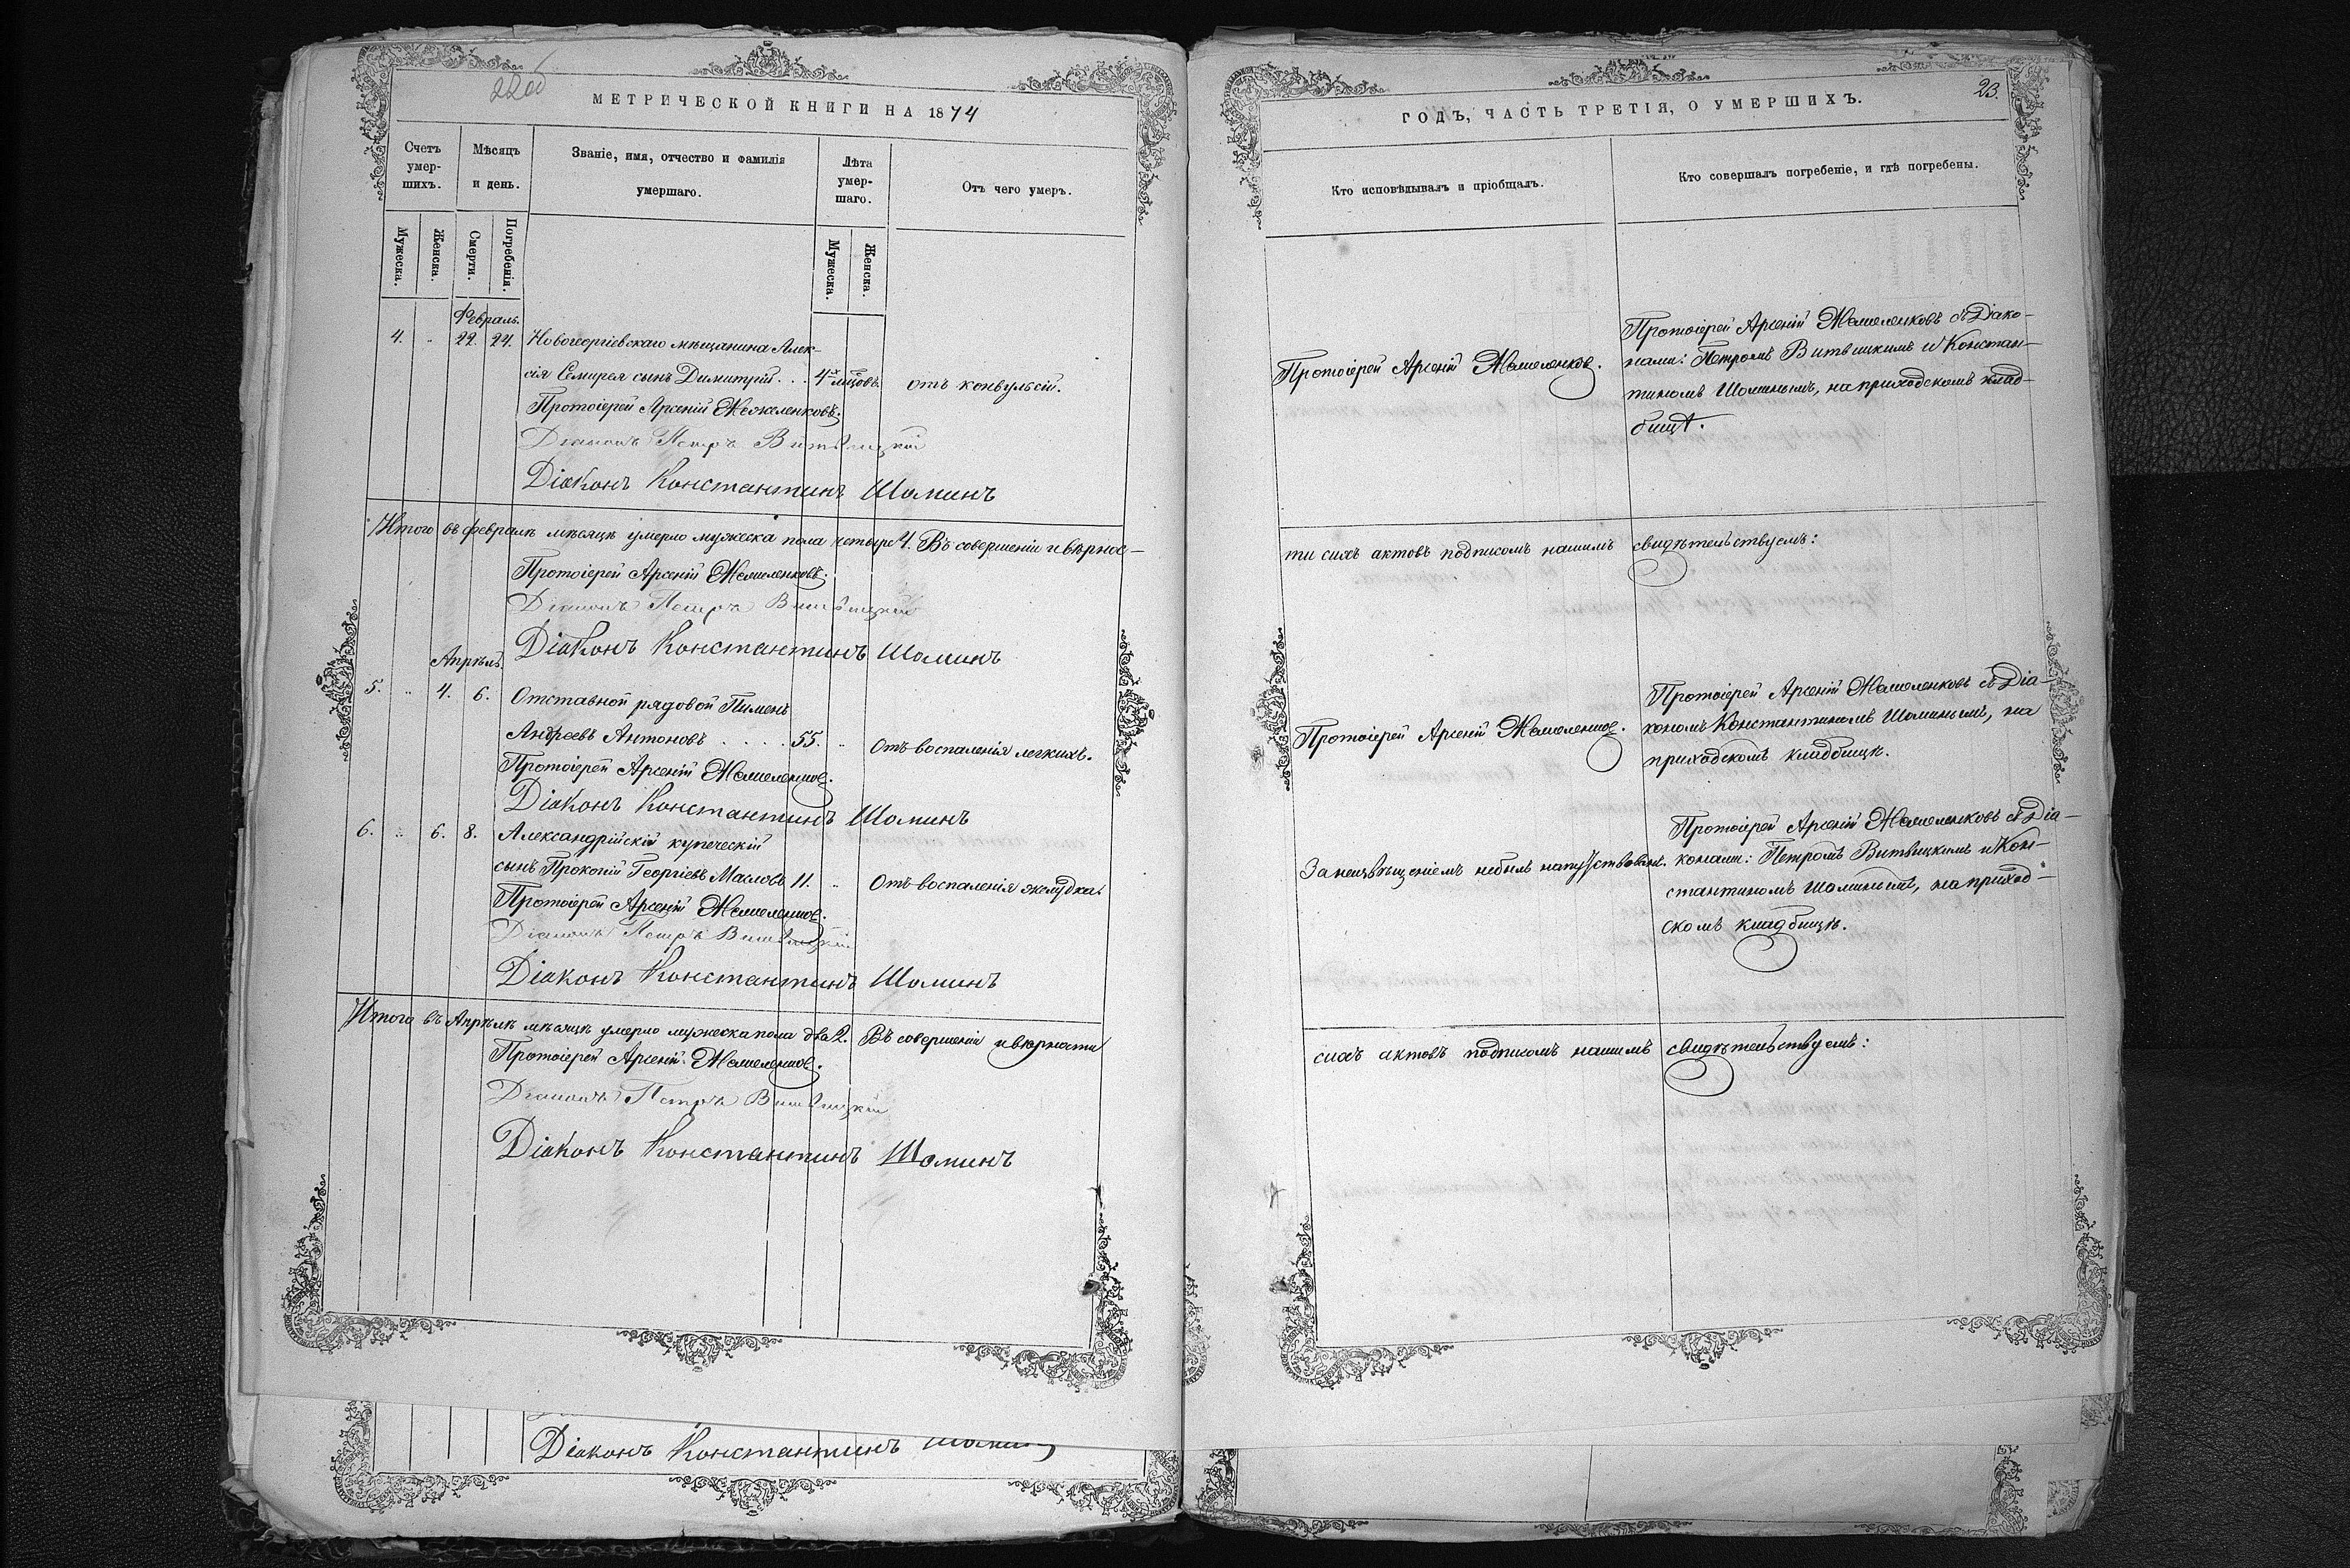 22об
МЕТРИЧЕСКОЙ КНИГИ НА 1874
Счетъ умер-шихъ.
Мѣсяцъ и день.
Званіе, имя, отчество и фамилія
умершаго.
Лѣта умер-шаго.
Отъ чего умеръ.
Мужеска.
Женска.
Смерти.
Погребенія.
Мужеска.
Женска.
Февраль.
4. 22. 24. Новогеоргіевскаго мѣщанина Алек-
сія сынъ Димитрій . . . 4х отъ конвульсій.
Протоіерей Арсеній
Діаконъ Петръ Витвицкій
Діаконъ Константинъ Шоминъ
Итого въ февралѣ мѣсяцѣ умерло мужеска пола четыре 4. Въ совершеніи и вѣрнос-
Протоіерей Арсеній
Діаконъ Петръ Витвицкій
Діаконъ Константинъ Шоминъ
Апрѣль
5. „ 4. 6. Отставной рядовой Пименъ
Андреевъ Антоновъ . . . . 55. „ Отъ воспаленія легкихъ.
Протоіерей Арсеній
Діаконъ Константинъ Шоминъ
6. „ 6. 8. Александрійскій купеческій
сынъ Прокопій Георгіевъ Масловъ 11. „ Отъ воспаленія желудка.
Протоіерей Арсеній
Діаконъ Петръ Витвицкій
Діаконъ Константинъ Шоминъ
Итого въ Апрѣлѣ мѣсяцѣ умерло мужеска пола два 2. Въ совершеніи и вѣрности
Протоіерей Арсеній
Діаконъ Петръ Витвицкій
Діаконъ Константинъ Шоминъ
Діаконъ Константинъ
23.
ГОДЪ, ЧАСТЬ ТРЕТІЯ, О УМЕРШИХЪ.
Кто исповѣдывалъ и пріобщалъ.
Кто совершалъ погребеніе, и гдѣ погребены.
Протоіерей Арсеній
Протоіерей Арсеній съ Діако-
нами: Петромъ Витвицкимъ и Констан-
тиномъ Шоминымъ, на приходскомъ клад-
бищѣ.
ти сихъ актовъ подписомъ нашимъ свидѣтельствуемъ:
Протоіерей Арсеній
Протоіерей Арсеній съ Діа-
кономъ Константиномъ Шоминымъ, на
приходскомъ кладбищѣ.
За неизвѣщеніемъ небылъ напутствованъ.
Протоіерей Арсеній съ Діа-
конами: Петромъ Витвицкимъ и Кон-
стантиномъ Шоминымъ, на приход-
скомъ кладбищѣ.
сихъ актовъ подписомъ нашимъ свидѣтельствуемъ: